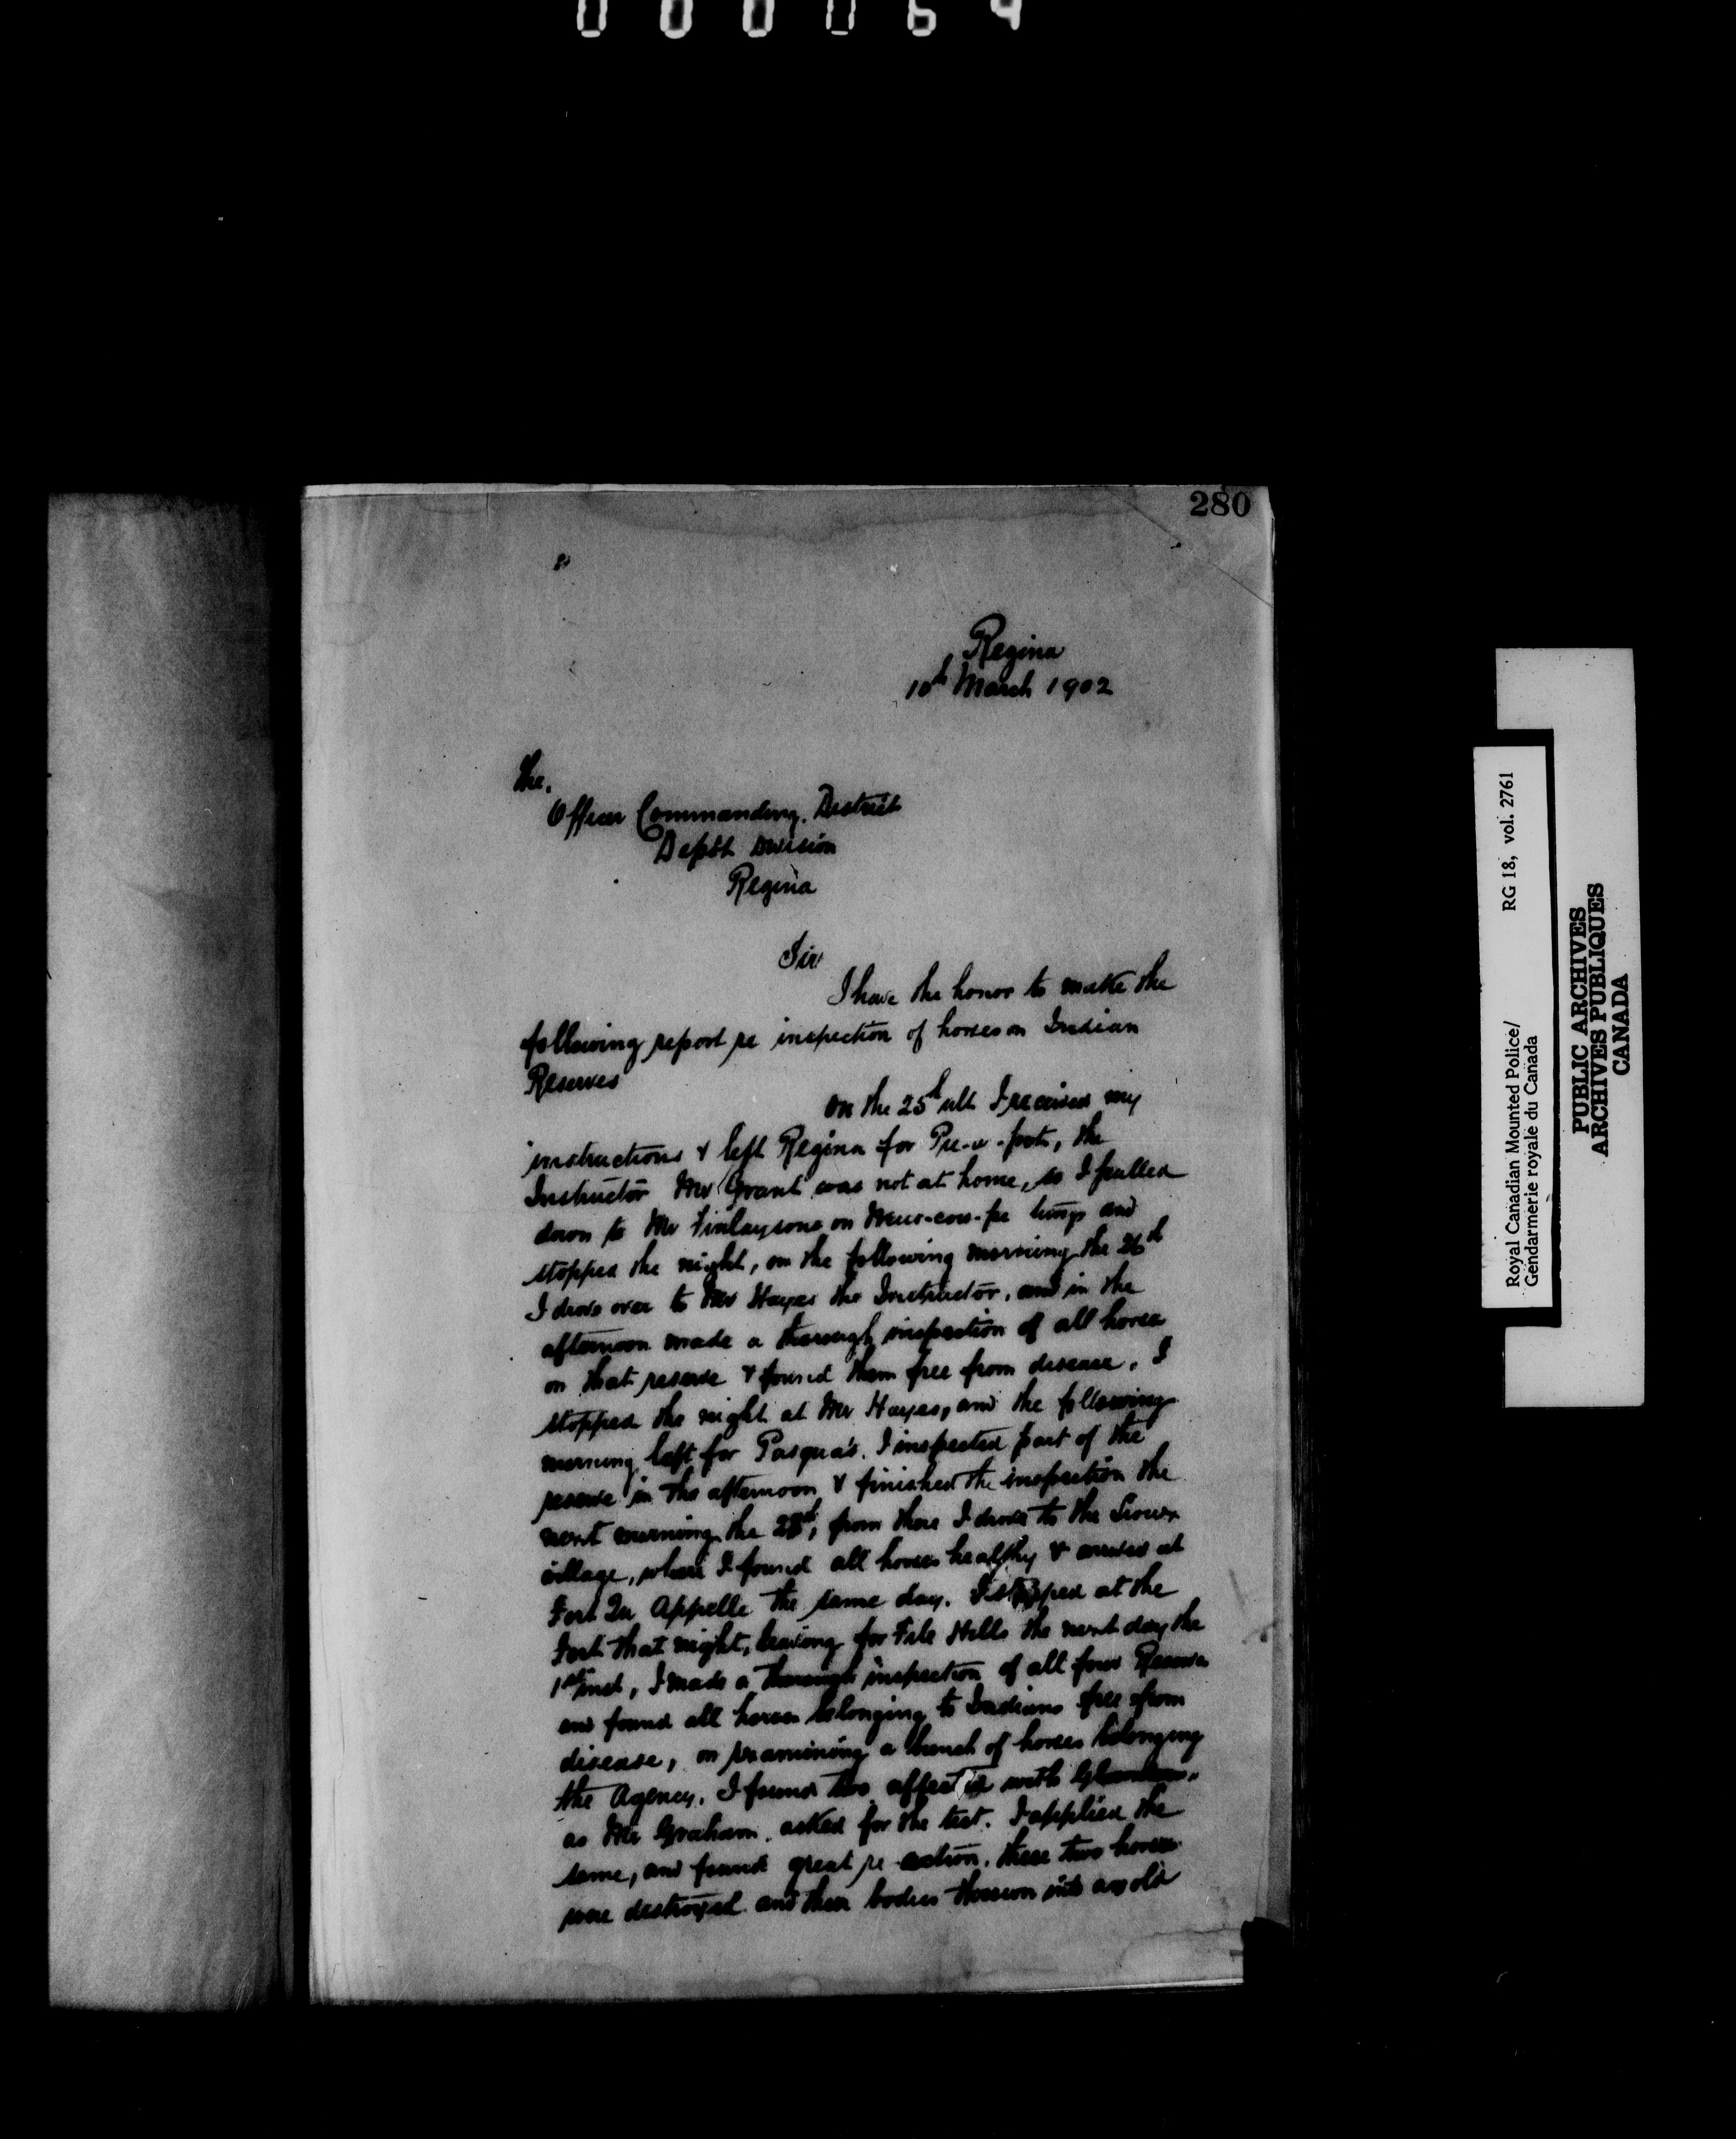 000064
280
Regina
10th March 1902
The.
Officer Commanding. District
Depôt Division
Regina
Sir
I have the honor to make the
following report re inspection of horses on Indian
Reserves
On the 25th ult I received my
instructions & left Regina for Pie-a-pots, the
Instructor Mr Grant was not at home, so I pulled
down to Mr Finlaysons on and
stopped the night, on the following morning the 26th
I drove over to Mr Hayes the Instructor, and in the
afternoon made a thorough inspection of all horses
on that reserve & found them free from disease. I
stopped the night at Mr Hayes, and the following
morning left for Pasqua's. I inspected part of the
reserve in the afternoon & finished the inspection the
next morning the 28th, from there I drove to the Sioux
village, where I found all horses healthy & arrived at
Fort Qu Appelle the same day. I stopped at the
Fort that night, leaving for File Hills the next day the
1st inst, I made a thorough inspection of all four Reserves
and found all horses belonging to Indians free from
disease, on examining a bunch of horses belonging
the Agency. I found two affected with Glanders.
as Mr Graham. asked for the test. I applied the
same, and found great re-action. these two horses
were destroyed and their bodies thrown into an old
Royal Canadian Mounted Police/ RG 18, vol. 2761
Gendarmerie royale du Canada
PUBLIC ARCHIVES
ARCHIVES PUBLIQUES
CANADA